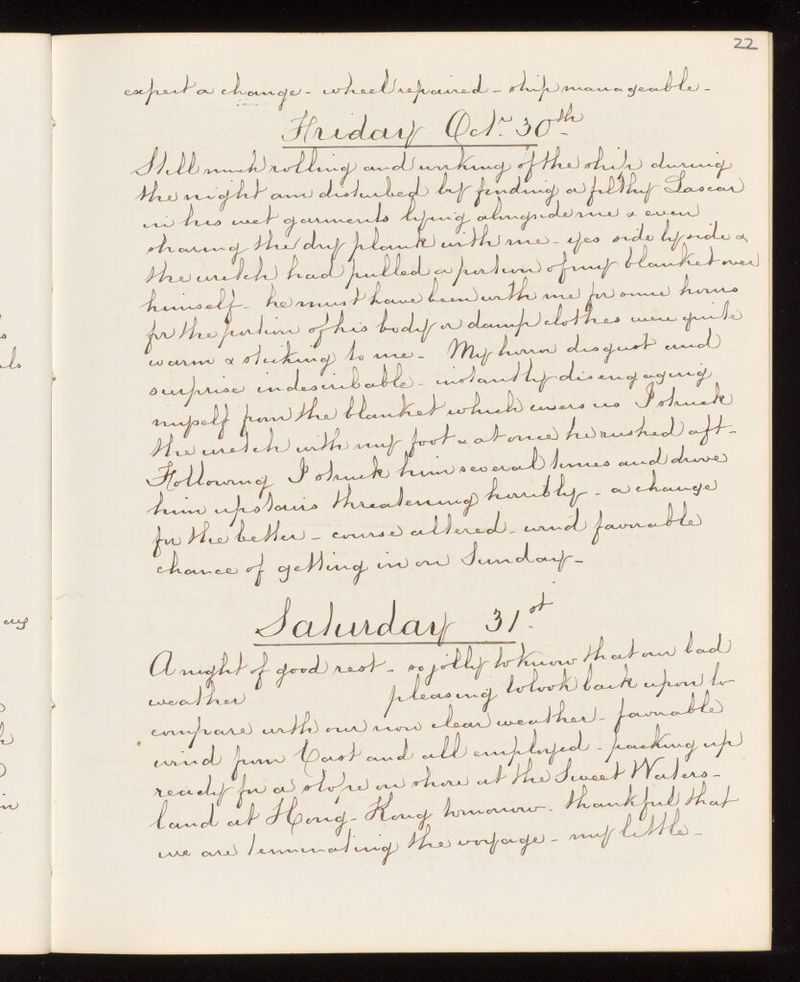 22
expect a change - wheel repaired - ship manageable -
Friday Oct.r 30th
Still much rolling and working of the ship during
the night am disturbed by finding a filthy Lascar
in his wet garments lying alongside me & even
sharing the dry plank with me - yes side by side &
the wretch had pulled a portion of my blanket over
himself - he must have been with me for some hours
for the portion of his body or damp clothes were quite
warm & sticking to me - My horror disgust and
surprise indescribable - instantly disengaging
myself from the blanket which covers us I struck
the wretch with my foot & at once he rushed aft -
Following I struck him several times and drove
him upstairs threatening horribly - a change
for the better - course altered - wind favorable
chance of getting in on Sunday -
Saturday 31st
A night of good rest - so jolly to know that our bad
weather pleasing to look back upon to
compare with our now clear weather - favorable
wind from East and all employed - packing up
ready for a on shore at the Sweet Waters -
land at Hong-Kong tomorrow - thankful that
we are terminating the voyage - my little -
ays
ls
s
h
in